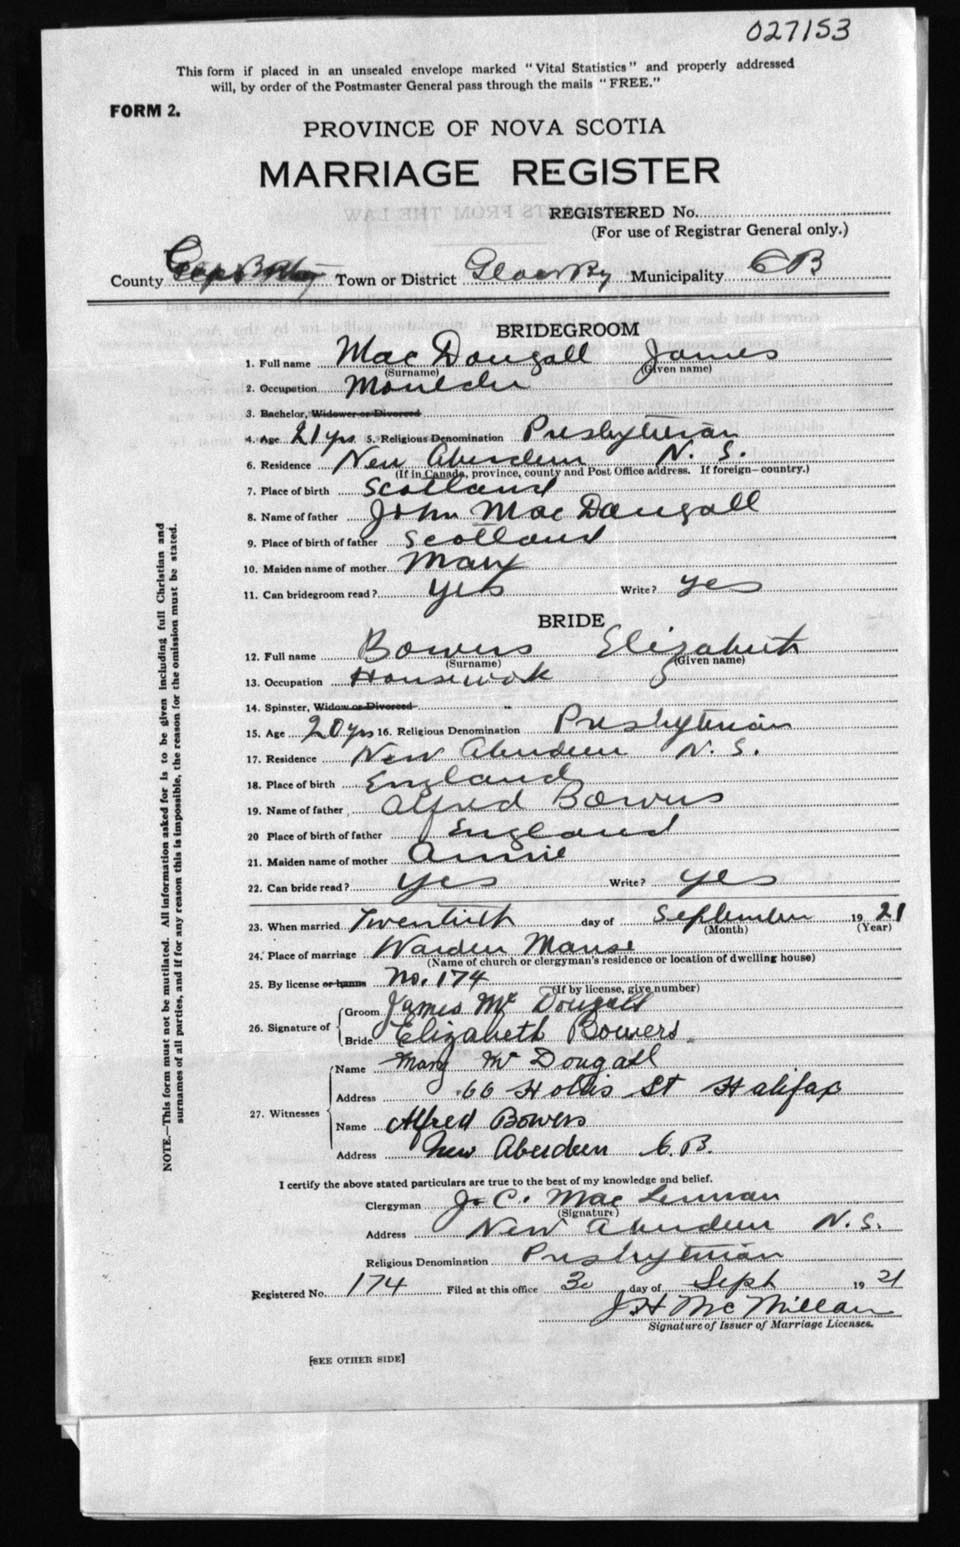 027153
This form if placed in an unsealed envelope marked "Vital Statistics" and properly addressed
will, by order of the Postmaster General pass through the mails "FREE."
FORM 2.
PROVINCE OF NOVA SCOTIA
MARRIAGE REGISTER
REGISTERED No.
(For use of Registrar General only.)
County Cape Breton Town or District Glace Bay Municipality CB
BRIDEGROOM
1. Full name MacDougall James
(Surname) (Given name)
2. Occupation Moulder
3. Bachelor, Widower or Divorced
4. Age 21 yrs 5. Religious Denomination Presbyterian
6. Residence New Aberdeen N. S.
(If in Canada, province, county and Post Office address. If foreign—country.)
7. Place of birth Scotland
8. Name of father John MacDougall
9. Place of birth of father Scotland
10. Maiden name of mother Mary
11. Can bridegroom read? yes Write? yes
BRIDE
12. Full name Bowers Elizabeth
(Surname) (Given name)
13. Occupation Housework
14. Spinster, Widow or Divorced
15. Age 20 yrs 16. Religious Denomination Presbyterian
17. Residence New Aberdeen N. S.
18. Place of birth England
19. Name of father Alfred Bowers
20 Place of birth of father England
21. Maiden name of mother Annie
22. Can bride read? yes Write? yes
23. When married Twentieth day of September 1921
(Month) (Year)
24. Place of marriage Warden Manse
(Name of church or clergyman's residence or location of dwelling house)
25. By license or banns No. 174
(If by license, give number)
26. Signature of Groom James Mc Dougall
Bride Elizabeth Bowers
27. Witnesses Name Mary Mc Dougall
Address 66 Hollis St Halifax
Name Alfred Bowers
Address New Aberdeen C.B.
I certify the above stated particulars are true to the best of my knowledge and belief.
Clergyman J. C. MacLennan
(Signature)
Address New Aberdeen N.S.
Religious Denomination Presbyterian
Registered No. 174 Filed at this office 30 day of Sept 1921
J H McMillan
Signature of Issuer of Marriage Licenses.
[SEE OTHER SIDE]
NOTE.—This form must not be mutilated. All information asked for is to be given including full Christian and
surnames of all parties, and if for any reason this is impossible, the reason for the omission must be stated.